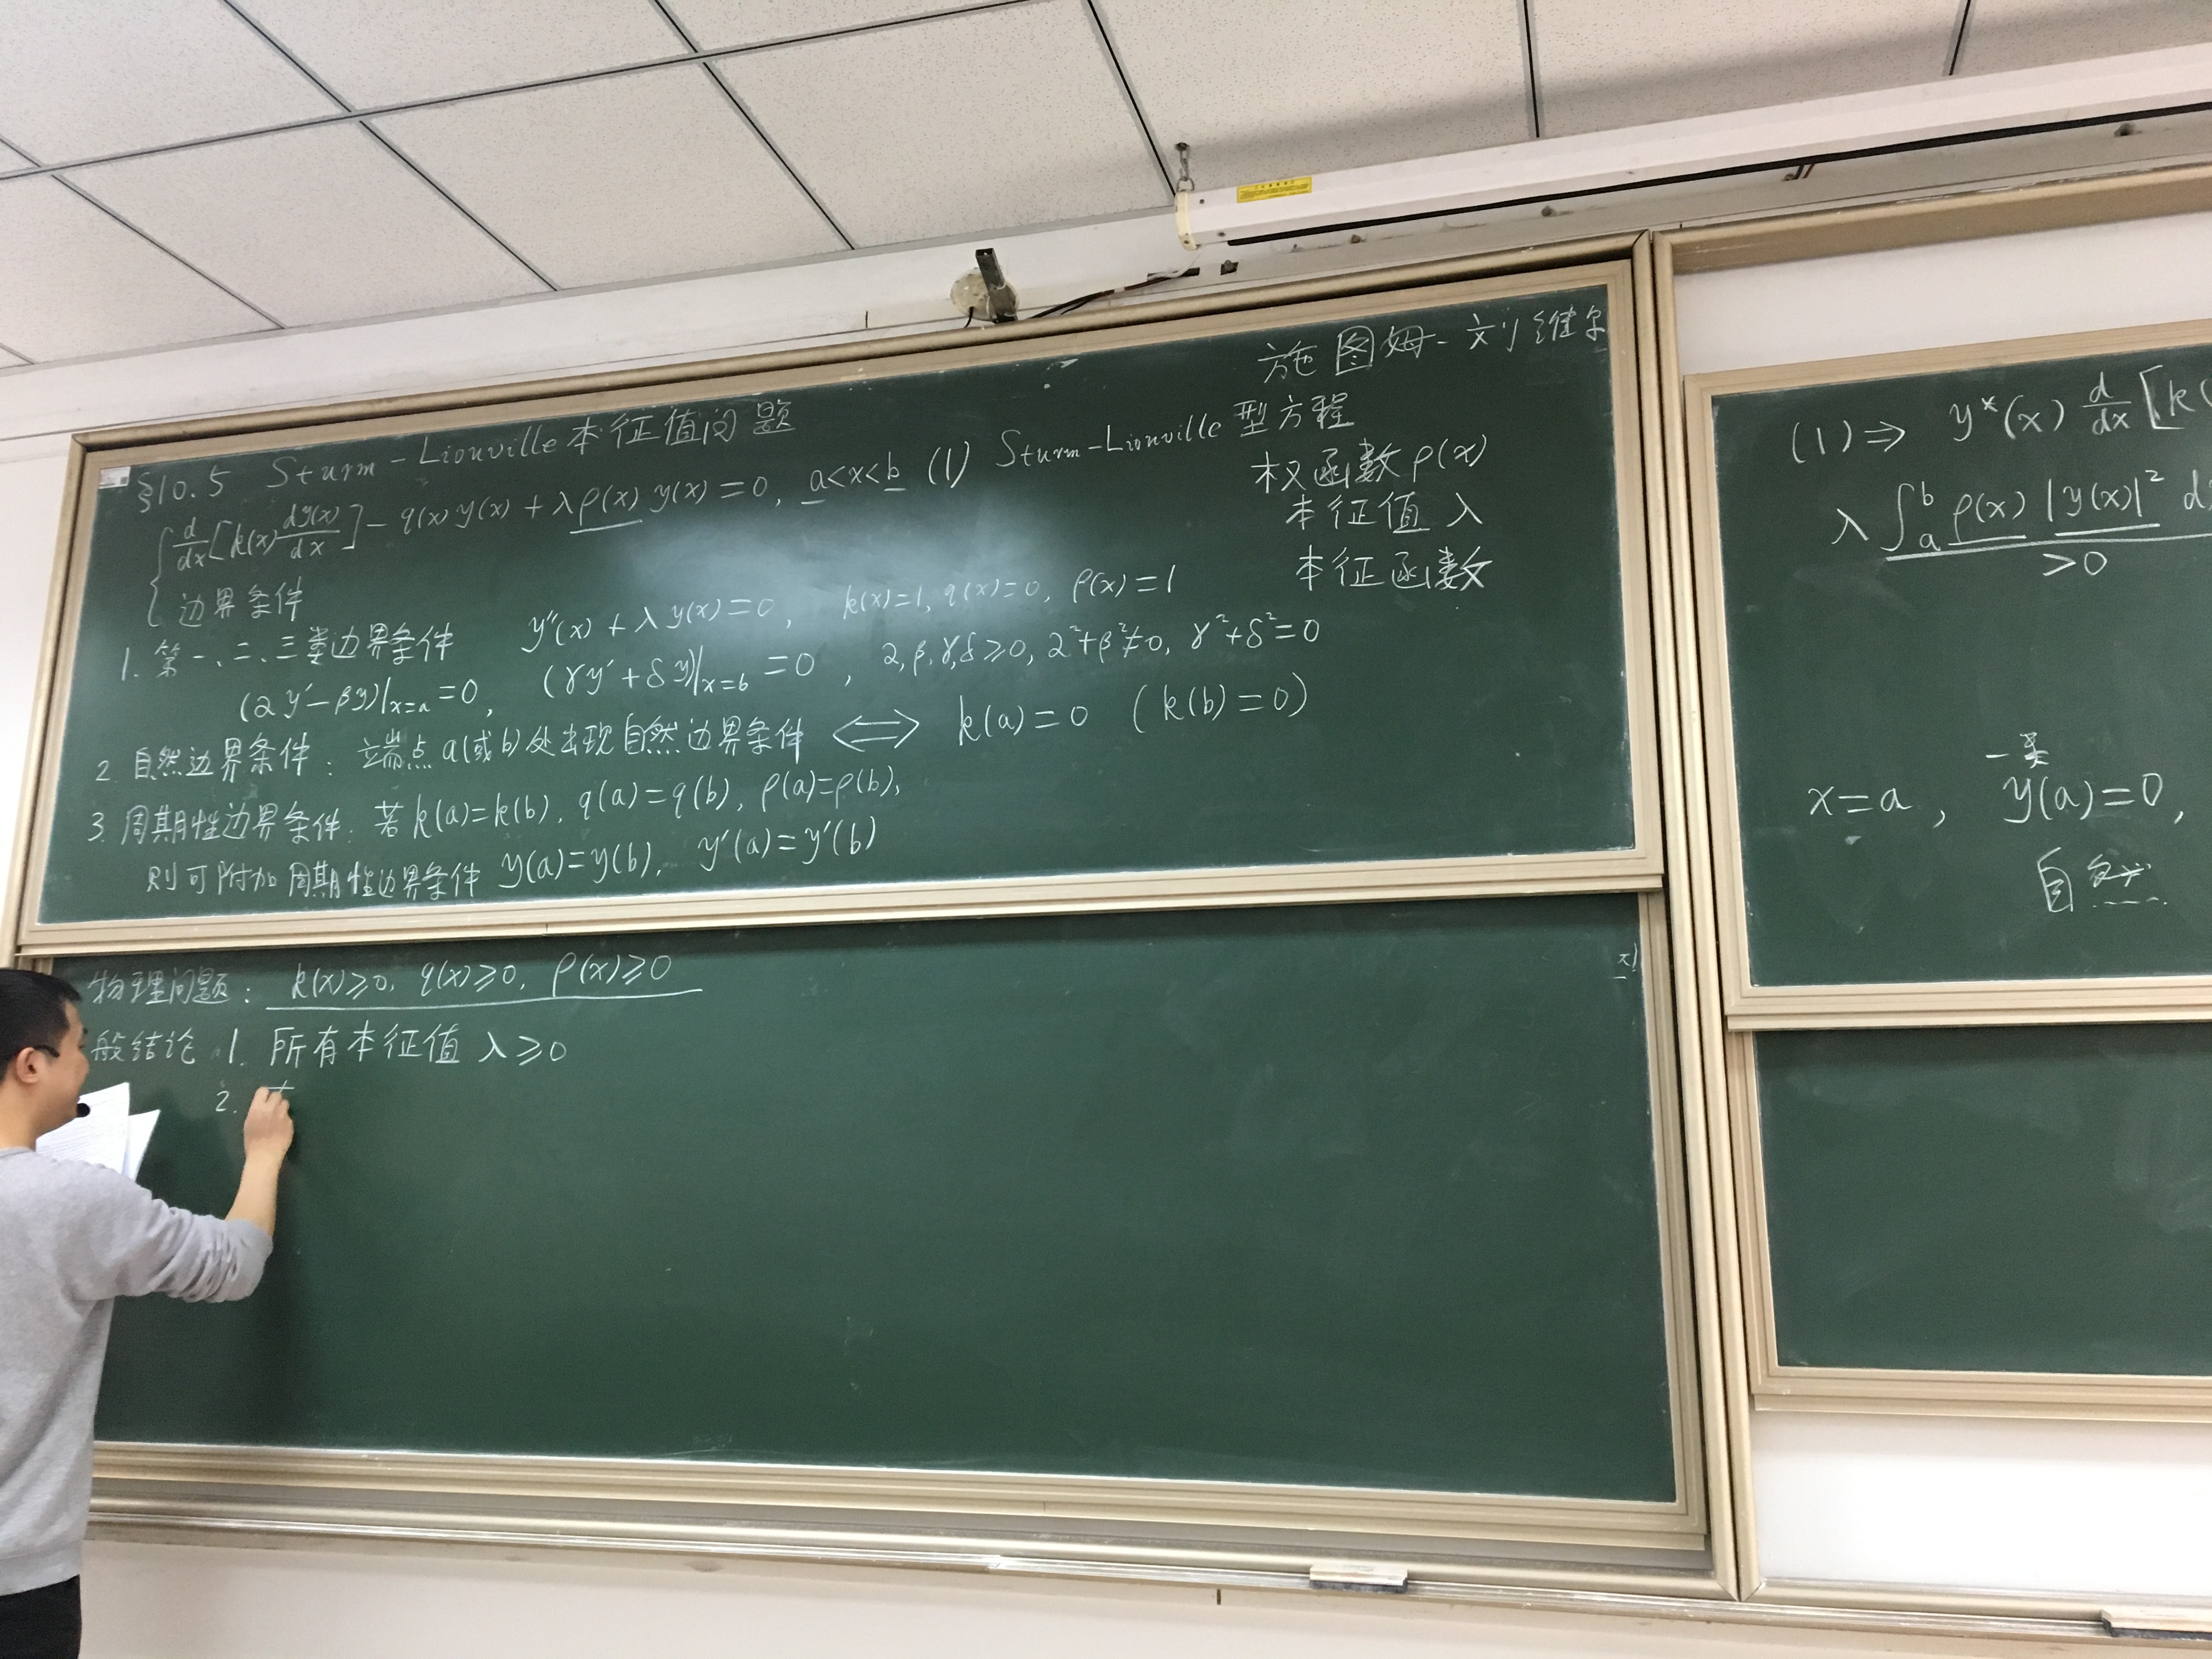 施图姆-刘维尔
§10.5 Sturm-Liouville本征值问题
d/dx[k(x)dy(x)/dx]-q(x)y(x)+λρ(x)y(x)=0, a<x<b (1) Sturm-Liouville型方程
权函数ρ(x)
本征值λ
本征函数
边界条件
y''(x)+λy(x)=0, k(x)=1, q(x)=0, ρ(x)=1
1. 第一、二、三类边界条件
(αy'-βy)|x=a=0, (γy'+δy)|x=b=0, α,β,γ,δ≥0, α²+β²≠0, γ²+δ²=0
2. 自然边界条件: 端点a(或b)处出现自然边界条件 ⟺ k(a)=0 (k(b)=0)
3. 周期性边界条件: 若k(a)=k(b), q(a)=q(b), ρ(a)=ρ(b),
则可附加周期性边界条件 y(a)=y(b), y'(a)=y'(b)
物理问题: k(x)≥0, q(x)≥0, ρ(x)≥0
般结论 1. 所有本征值λ≥0
2.
(1)⇒ y*(x) d/dx[k(
λ∫ₐᵇρ(x)|y(x)|² d
>0
一类
x=a, y(a)=0,
自然